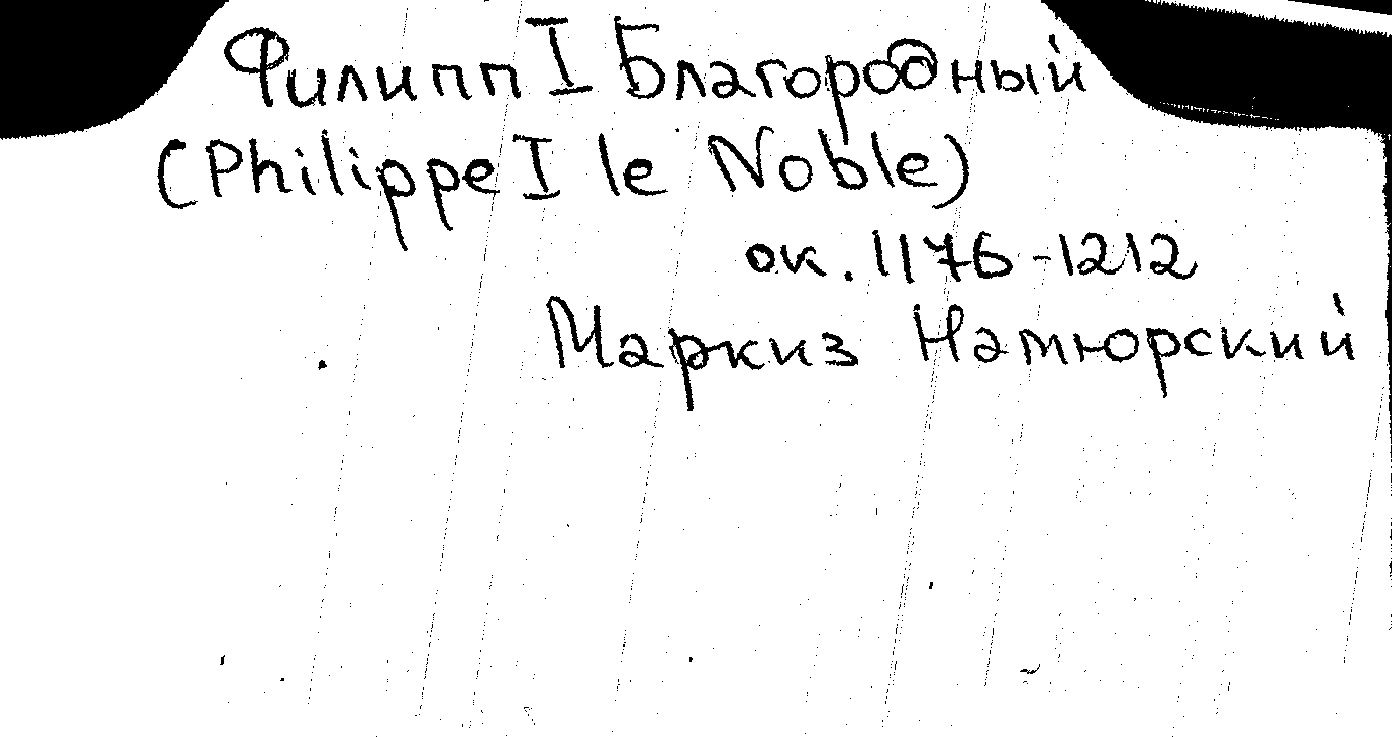 Филипп I Благородный
(Philippe I le Noble)
ок. 1176-1212
Маркиз Намюрский